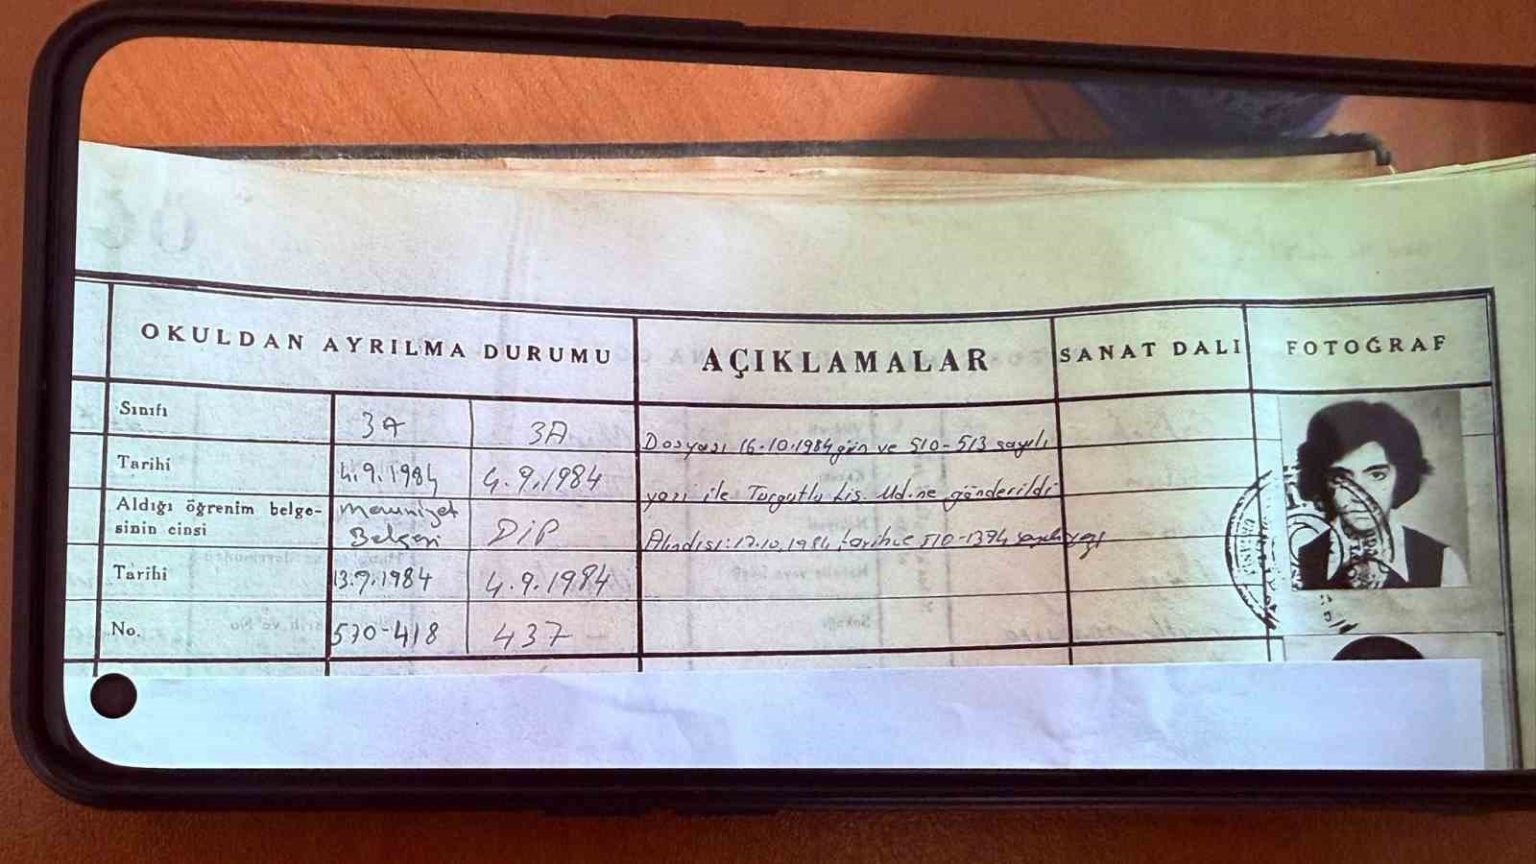 OKULDAN AYRILMA DURUMU AÇIKLAMALAR SANAT DALI FOTOĞRAF
Sınıfı 3A 3A
Dosyası 16.10.1984 gün ve 510-513 sayılı
Tarihi 4.9.1984 4.9.1984
yazı ile Turgutlu Lis. Md.ne gönderildi
Aldığı öğrenim belge-
sinin cinsi
Mezuniyet
Belgesi DİP
Alındısı: 17.10.1984 tarih ve 510-1374 sayılı yazı
Tarihi 13.9.1984 4.9.1984
No. 570-418 437